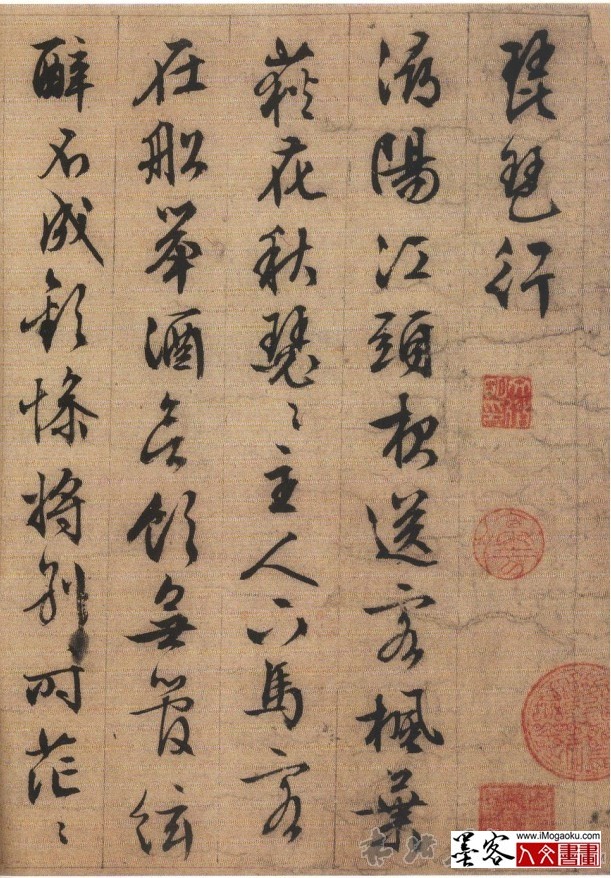 琵琶行
潯陽江頭夜送客楓葉
荻花秋瑟〻主人下馬客
在船舉酒欲飲無管絃
醉不成歡慘將別時茫〻
墨客 www.iMogaoku.com
人文書畫